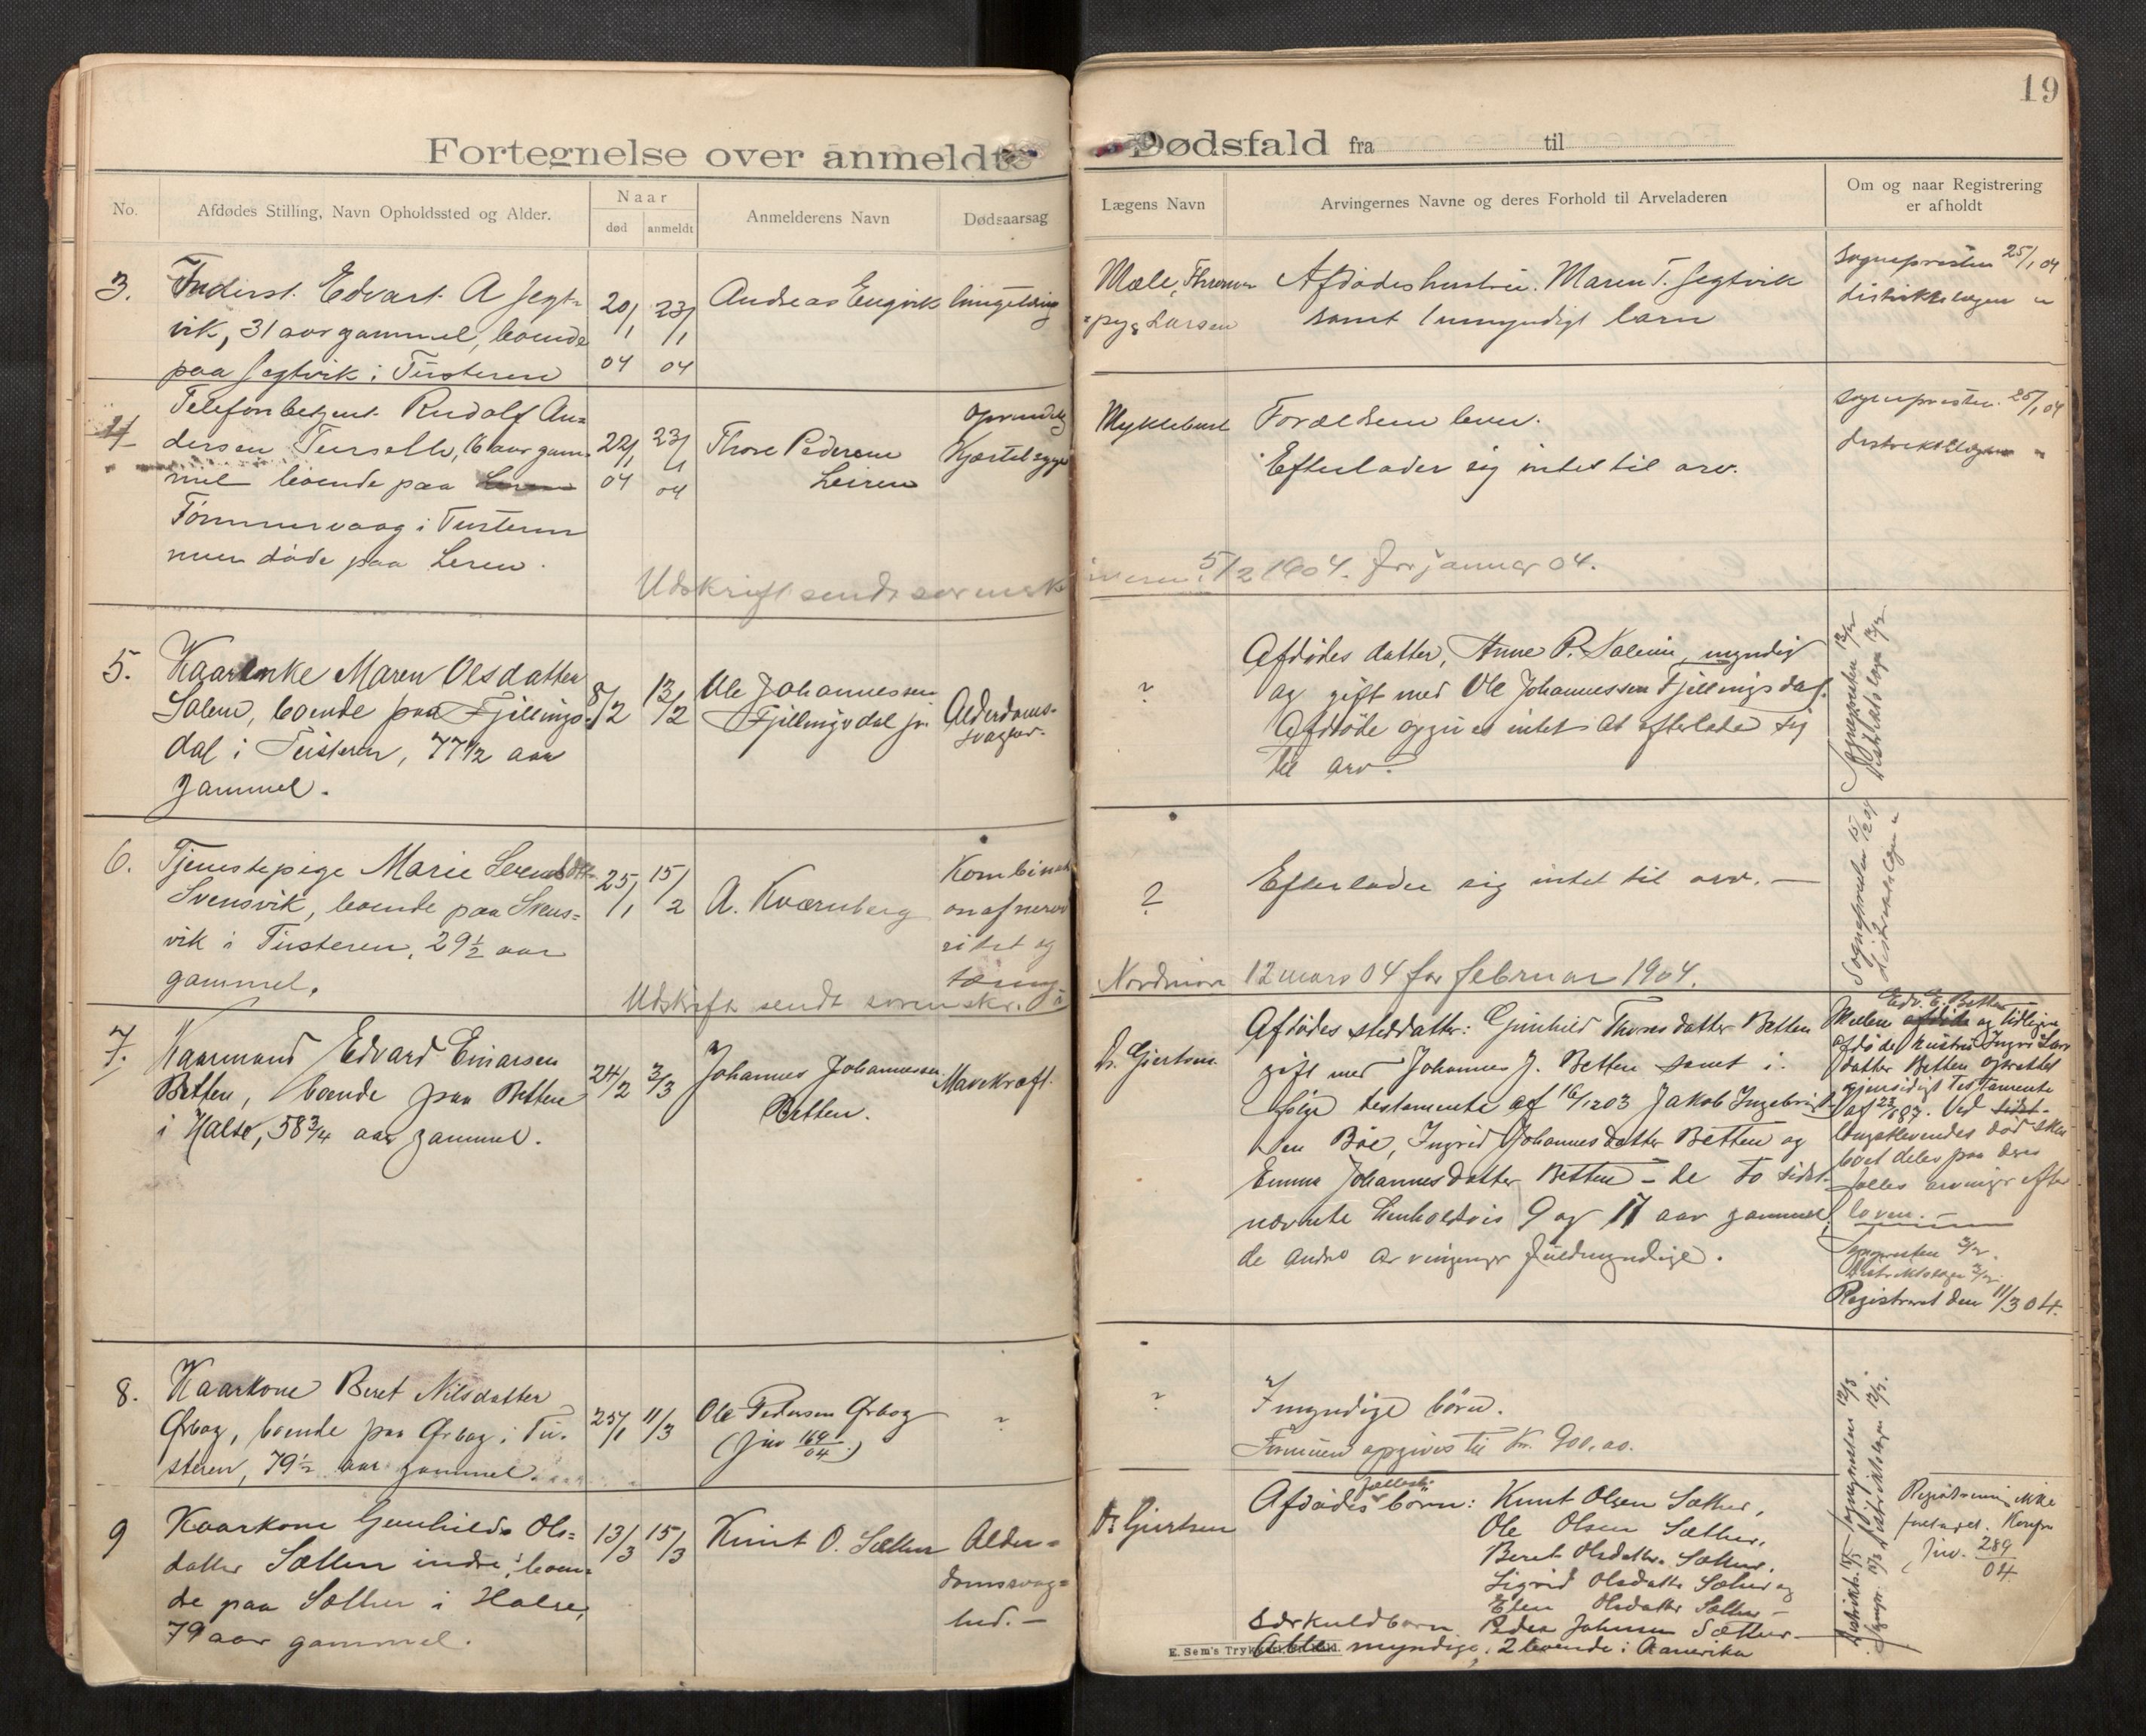 19
Fortegnelse over anmeldte Dødsfald fra til
No.
Afdødes Stilling, Navn Opholdssted og Alder.
Naar
død
anmeldt
Anmelderens Navn
Dødsaarsag
Lægens Navn
Arvingernes Navne og deres Forhold til Arveladeren
Om og naar Registrering
er afholdt
3.
Inderst. Edvart A Jegt-
vik, 31 aar gammel, boende
paa Jegtvik i Tusteren
20/1 04
23/1 04
Andreas Engvik
Afdødes hustru. Maren T. Jegtvik
samt 1 umyndigt barn
Sognepresten 25/1 04
distriktslægen "
4
Telefonbetjent Rudolf An-
dersen, 16 aar gam-
mel boende paa
Tømmervaag i Tusteren
men døde paa Leren.
22/1 04
23/1 04
Thore Pedersen
Leiren
Myklebust
Forældrene lever.
Efterlader sig intet til arv.
sognepresten 25/1 04
distriktslægen "
Udskrift sendt sorensk
5/2 1904. for januar 04.
5.
Kaarenke Maren Olsdatter
Salen, boende paa Fjellings-
dal i Tusteren, 77 1/2 aar
gammel.
8/2
13/2
Ole Johannessen
Fjellingsdal
Alderdoms-
?
Afdødes datter, Anne P. Salen, myndig
og gift med Ole Johannessen Fjellingsdal.
Afdøde opgives intet at efterlade sig
til arv.
Sognepresten 13/2
distriktslægen 13/2
6.
Tjenestepige Marie
Svensvik, boende paa Svens-
vik i Tusteren, 29 1/2 aar
gammel.
25/1
15/2
A. Kvernberg
Kombinati
on af nerv
?
Efterlader sig intet til arv. —
Sognepresten 15/2 04
distriktslægen "
Udskrift sendt sorenskr. i
Nordmøre 12 mars 04 for februar 1904.
7.
Kaarmand Edvard Einarsen
Betten, boende paa Betten
i Halse, 58 3/4 aar gammel.
24/2
3/3
Johannes Johannessen
Betten.
Mavekræft.
Dr. Gjertsen
Afdødes steddatter: Gunhild Thoresdatter Betten
gift med Johannes J. Betten samt i-
følge testamente af 16/12 03 Jakob Ingebrigt-
sen Bøe, Ingrid Johannesdatter Betten og
Emma Johannesdatter Betten – de to sidst-
nævnte henholdsvis 9 og 17 aar gammel,
de andre arvinger fuldmyndige.
Edv. E. Betten
Mellem afdøde og tidligere
afdøde hustru
datter Betten oprettet
gjensidigt testamente
af 23/ 87. Ved sidst-
længstlevendes død skal
boet deles paa deres
fælles arvinger efter
loven. —
Sognepresten 3/3.
distriktslægen 3/3.
Registreret den 11/3 04.
8.
Kaarkone Beret Nilsdatter
Ørbog, boende paa Ørbog i Tu-
steren, 79 1/2 aar gammel.
25/1
11/3
Ole Pedersen Ørbog
(Jnr 164/04.)
?
?
7 myndige børn.
Formuen opgives til Kr. 900,00.
Sognepresten 12/3
distriktslægen 12/3.
9
Kaarkone Gunhild Ols-
datter Sæther indre, boen-
de paa Sæther i Halse,
79 aar gammel.
13/3
15/3
Knut O. Sæther
Alder-
domssvag-
hed. —
Dr Gjertsen
Afdødes fælles børn: Knut Olsen Sæther,
Ole Olsen Sæther,
Beret Olsdatter Sæther,
Sigrid Olsdatter Sæther og
Elen Olsdatter Sæther –
Særkuldbarn Peder Johnsen Sæther –
Alle myndige, 2 boende i Amerika
Distrikts. 15/3
Sognepr. 15/3
Registrering ikke
foretaget. Konfr
Jnr. 289/04
E. Sem's Trykkeri